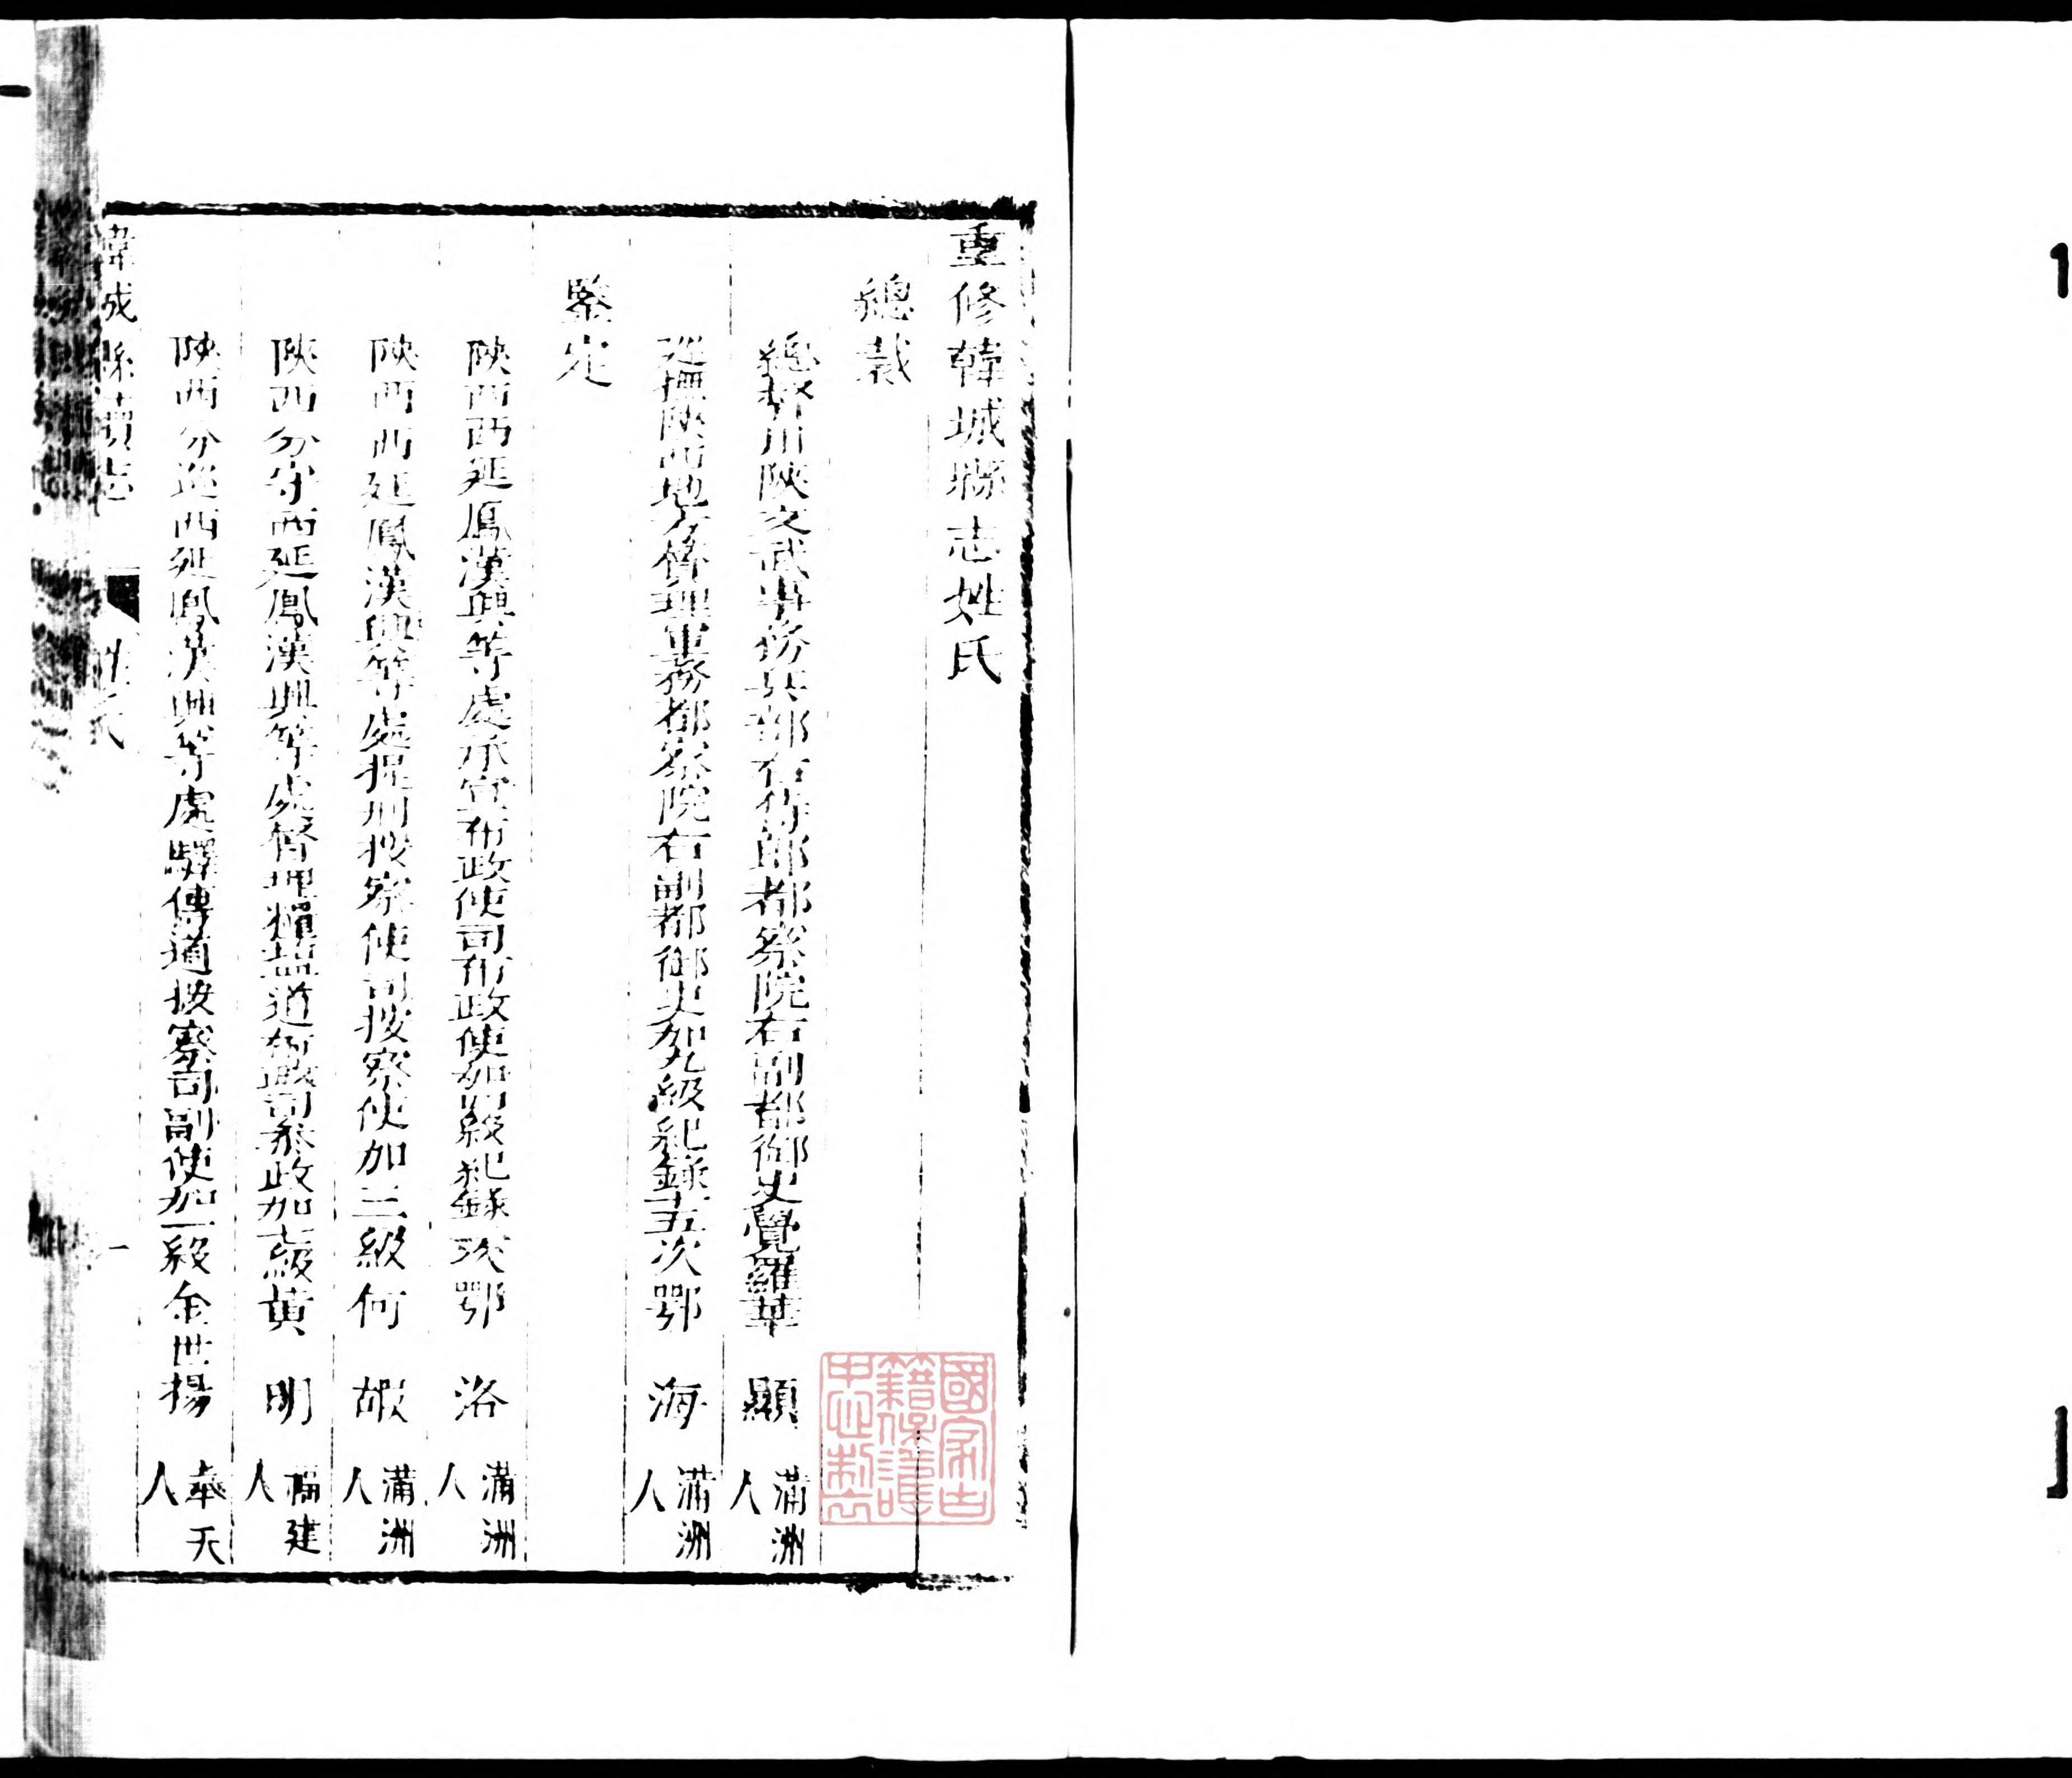 重修韓城縣志姓氏
總裁
總督川陝文武事務兵部右侍郎都察院右副都御史覺羅華顯滿洲人
巡撫陝西地方贊理軍務都察院右副都御史加九級紀錄十五次鄂海滿洲人
鑒定
陝西西延鳳漢興等處承宣布政使司布政使加四級紀錄次鄂洛滿洲人
陝西西延鳳漢興等處提刑按察使司按察使加三級何嘏滿洲人
陝西分守西延鳳漢興等處督理糧鹽道布政司參政加七級黃明福建人
陝西分巡西延鳳漢興等處驛傳道按察司副使加一級金世揚奉天人
縣續志 姓氏 一
國家古籍保護中心製